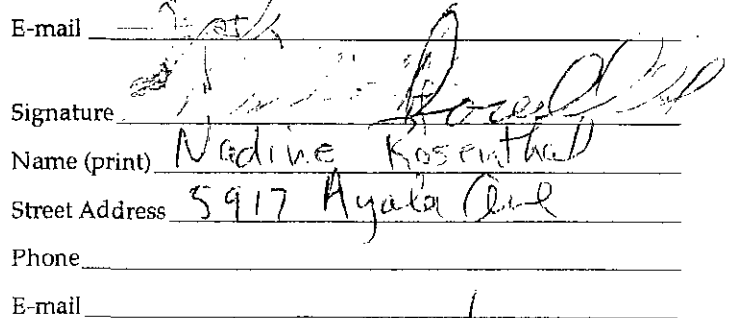 E-mail
Signature
Name (print) Nadine Rosenthal
Street Address 5917 Ayala Ave
Phone
E-mail